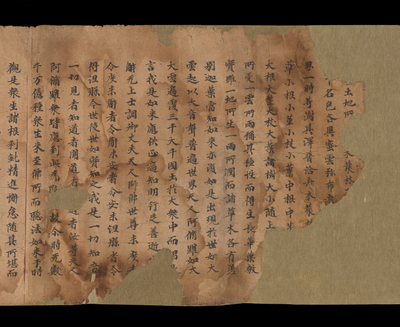 土地所 木叢林
名色各異密雲弥布
界一時等澍其澤普洽卉木叢林
藥草小根小莖小枝小葉中根中莖
大根大莖大枝大葉諸樹大小随上
所受一雲所雨稱其種性而得生長華菓敷
實雖一地所生一雨所潤而諸草木各有差
别迦葉當知如來亦復如是出現於世如大
雲起以大音聲普遍世界天人阿脩羅如
大雲遍覆三千大千國土於大衆中而唱
言我是如來應供正遍知明行足善逝
解无上士調御丈夫天人師佛世尊未度
令度未解者令解未安者令安未涅槃者令
得涅槃今世後世如實知之我是一切知者
一切見者知道者開道者
阿脩羅衆皆應到此 故尒時无數
千万億種衆生來至佛所而聽法如來于時
觀是衆生諸根利鈍精進懈怠随其所堪而